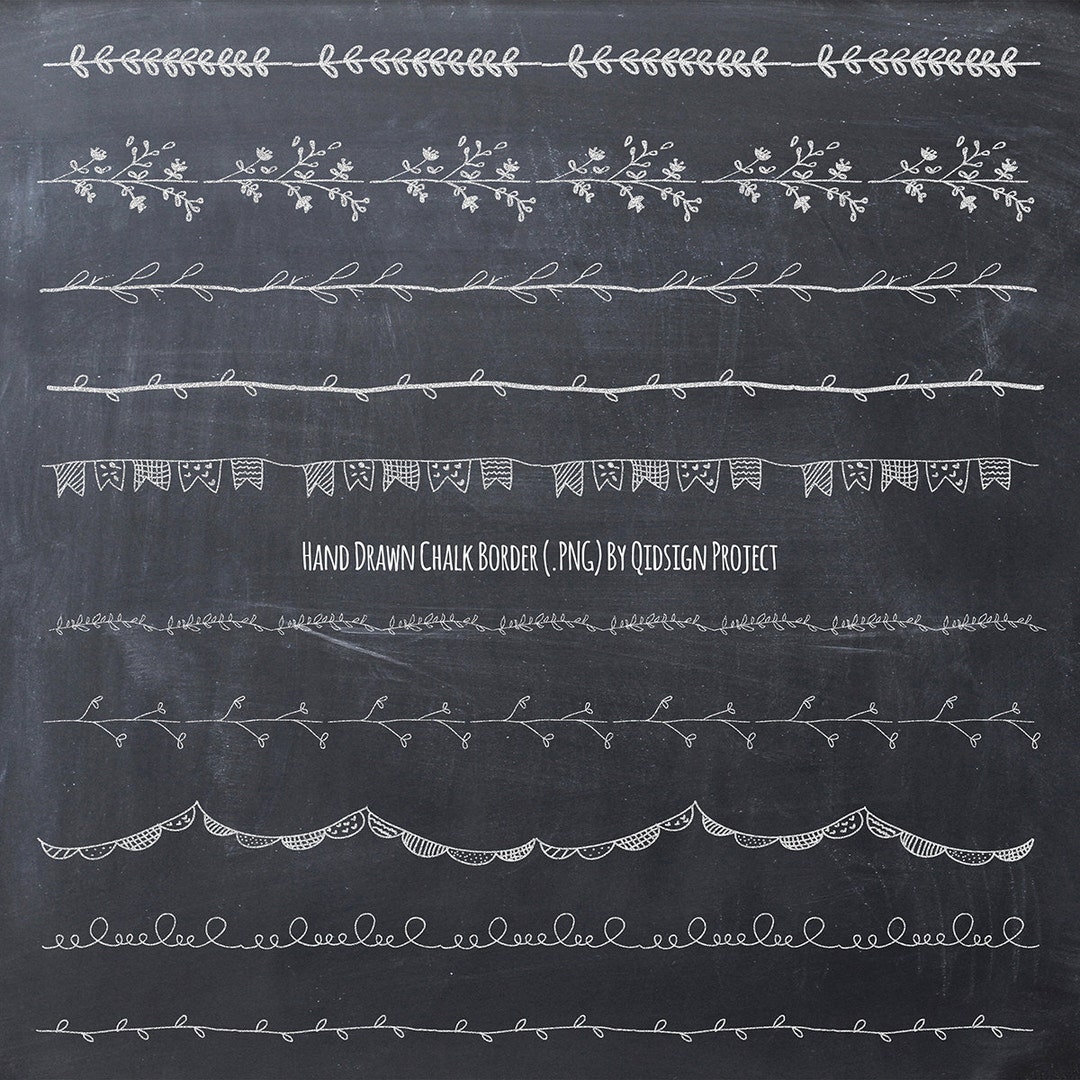 Hand Drawn Chalk Border (.PNG) By Qidsign Project